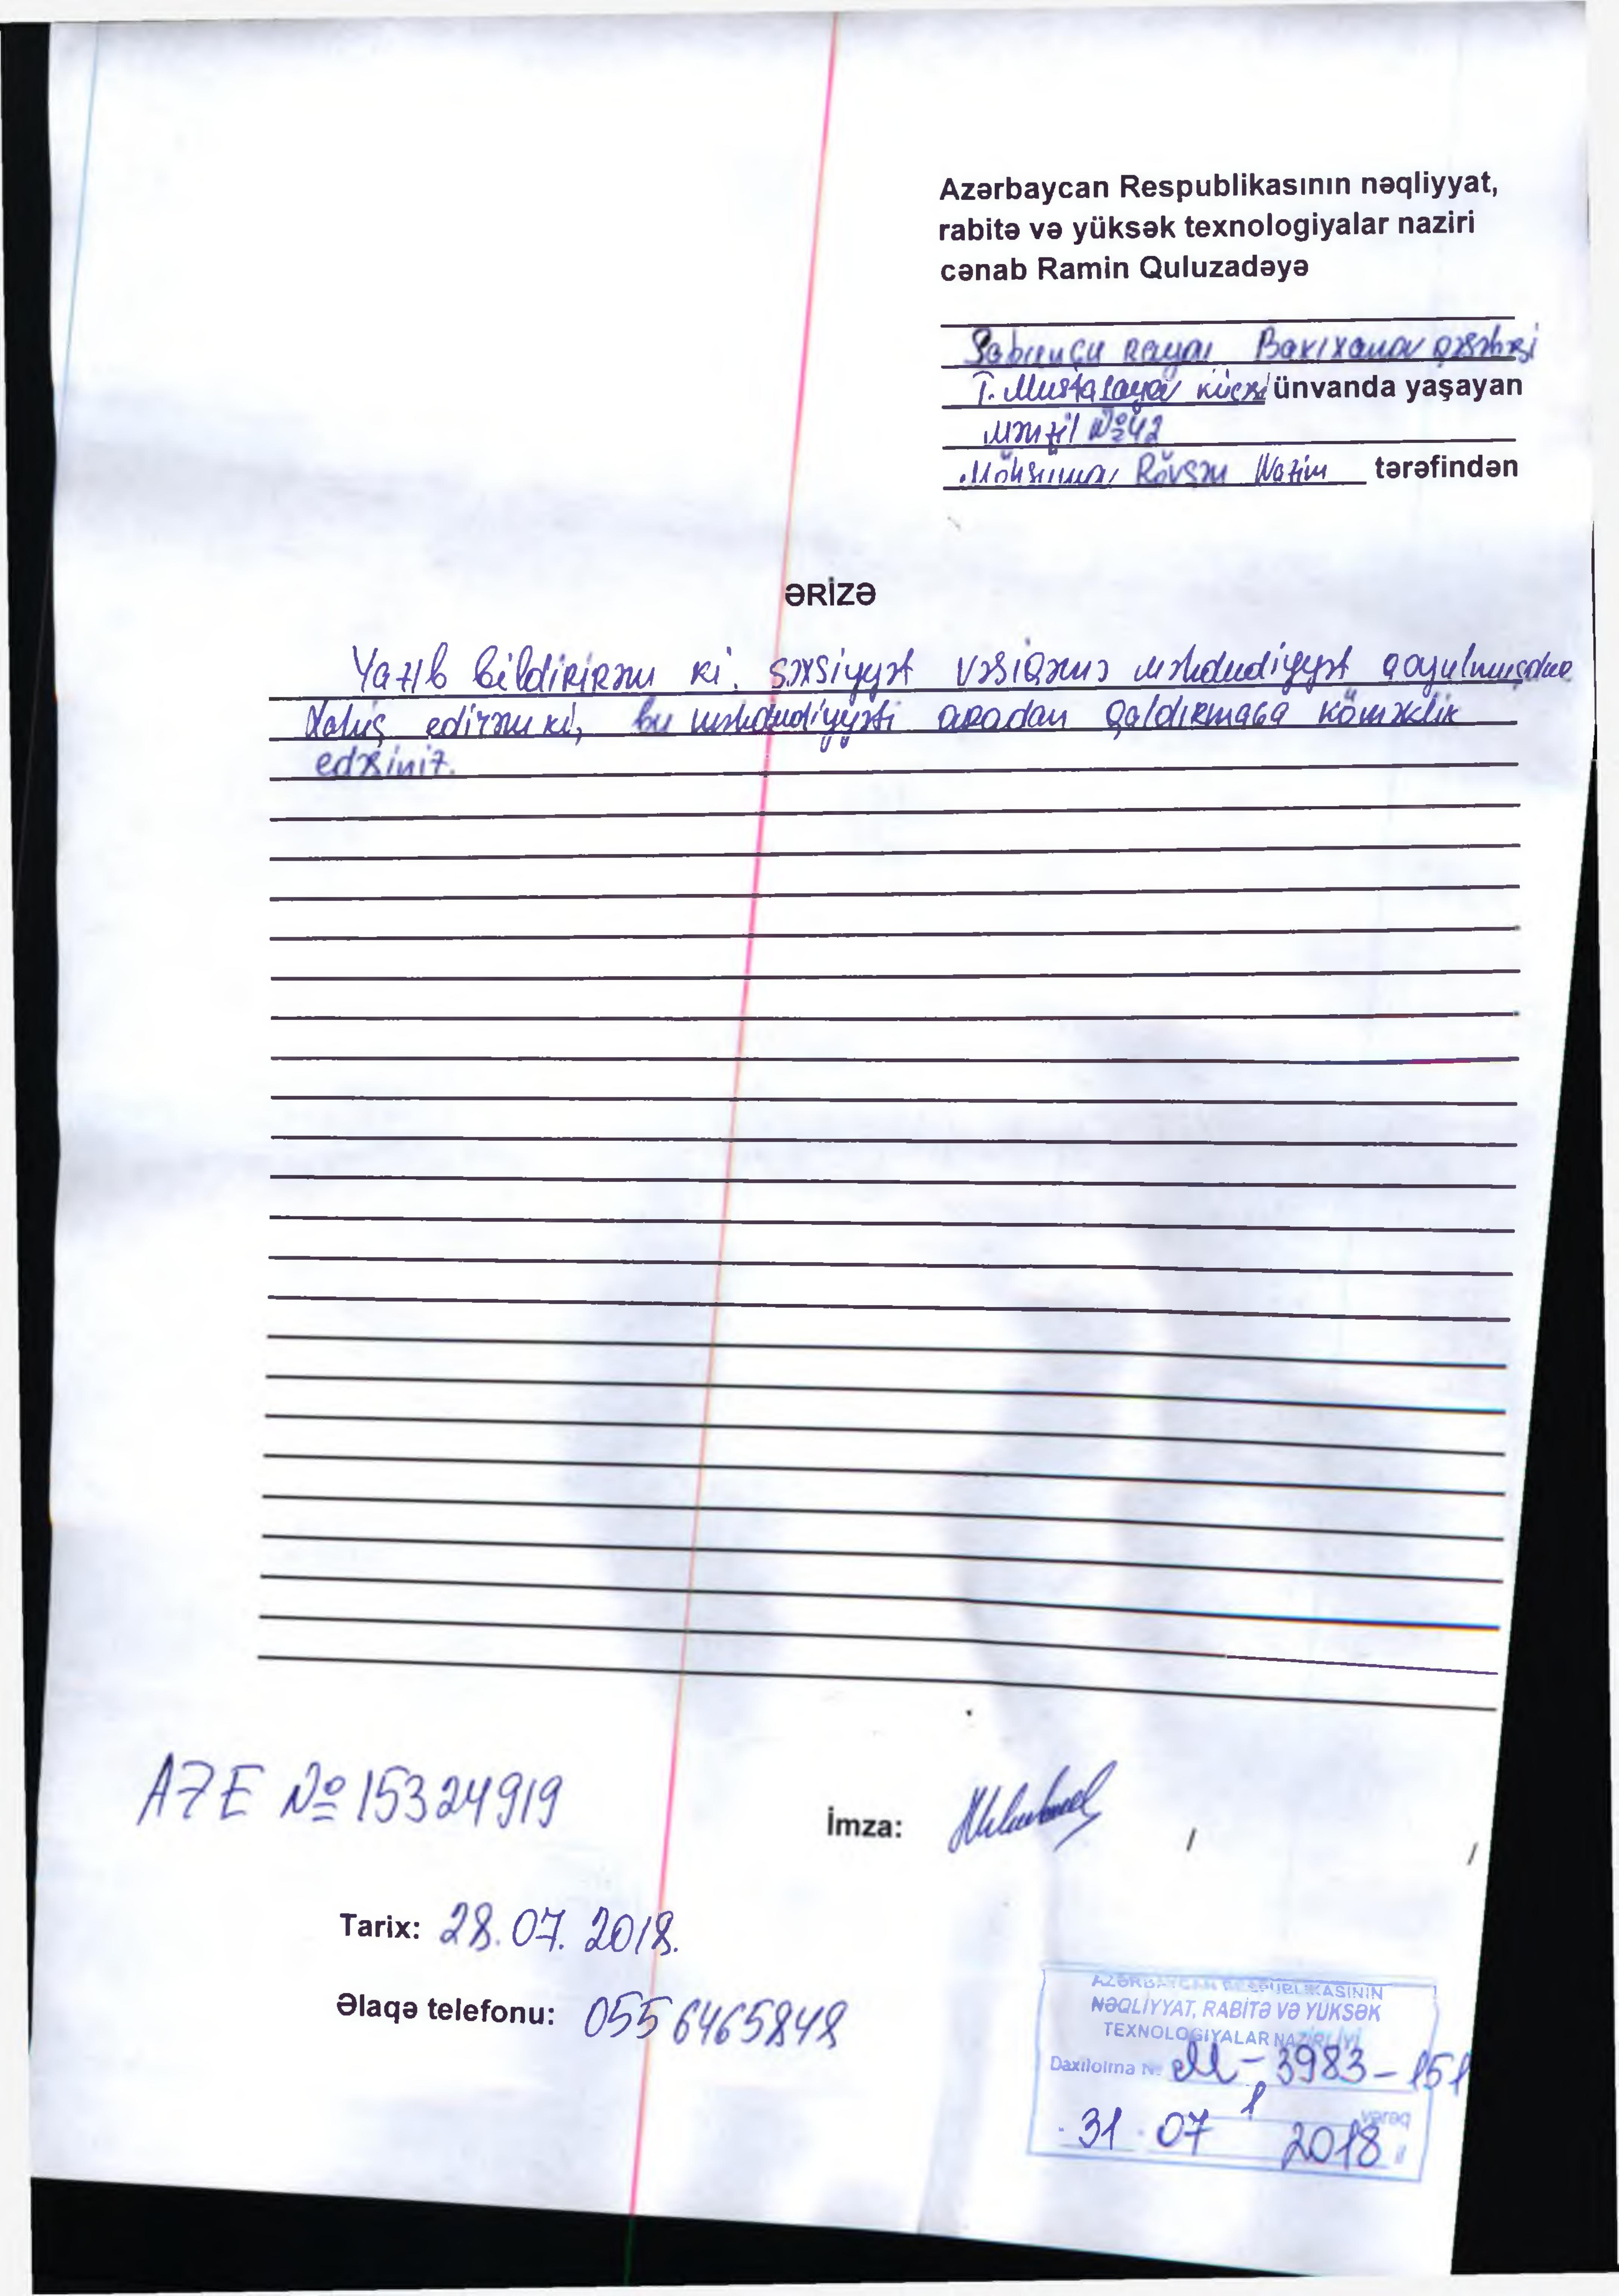 Azərbaycan Respublikasının nəqliyyat,
rabitə və yüksək texnologiyalar naziri
cənab Ramin Quluzadəyə
Sabunçu rayon Bakıxanov qəsəbəsi
T. Mustafayev küçəsi ünvanda yaşayan
Mənzil №42
Rövşən Nazim tərəfindən
ƏRİZƏ
Yazıb bildirirəm ki. şəxsiyyət vəsiqəmə məhdudiyyət qoyulmuşdur
Xahiş edirəm ki, bu məhdudiyyəti aradan qaldırmağa köməklik
edəsiniz.
AZE №15324919
İmza:
/ /
Tarix: 28.07.2018.
Əlaqə telefonu: 055 6465848
AZƏRBAYCAN RESPUBLİKASININ
NƏQLİYYAT, RABİTƏ VƏ YÜKSƏK
TEXNOLOGİYALAR NAZİRLİYİ
Daxilolma № M-3983-151
1 vərəq
31 07 2018 il